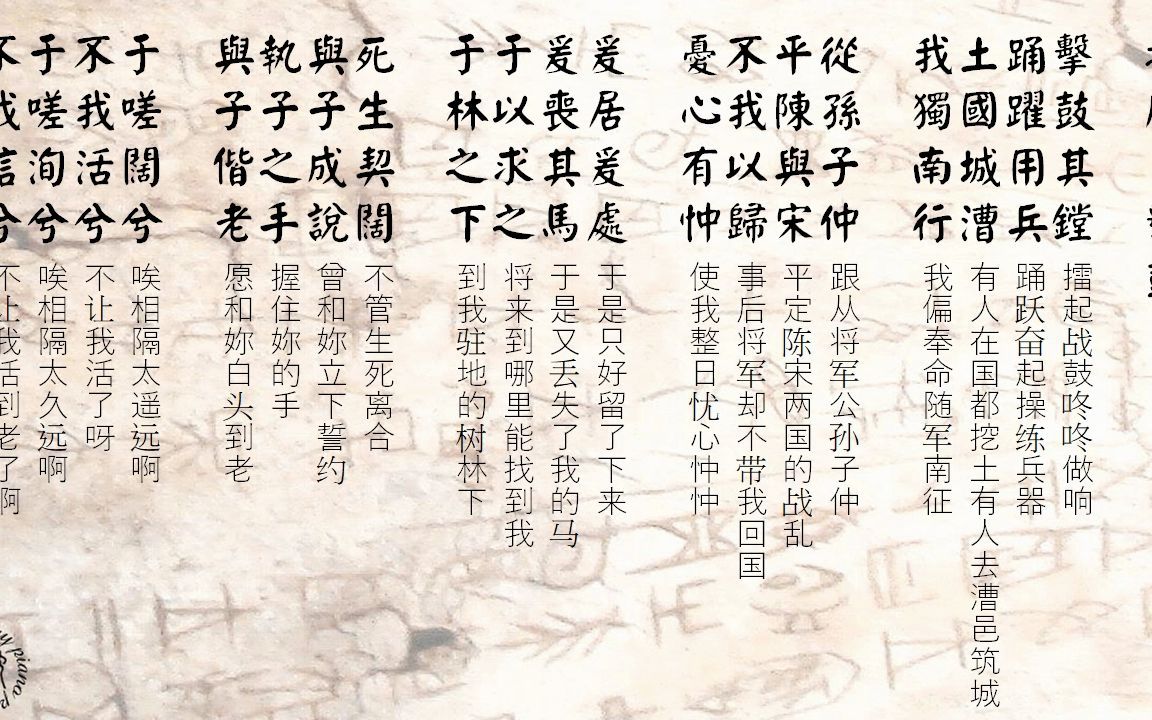 擊鼓其鏜
擂起战鼓咚咚做响
踊躍用兵
踊跃奋起操练兵器
土國城漕
有人在国都挖土有人去漕邑筑城
我獨南行
我偏奉命随军南征
從孫子仲
跟从将军公孙子仲
平陳與宋
平定陈宋两国的战乱
不我以歸
事后将军却不带我回国
憂心有忡
使我整日忧心忡忡
爰居爰處
于是只好留了下来
爰喪其馬
于是又丢失了我的马
于以求之
将来到哪里能找到我
于林之下
到我驻地的树林下
死生契闊
不管生死离合
與子成說
曾和妳立下誓约
執子之手
握住妳的手
與子偕老
愿和妳白头到老
于嗟闊兮
唉相隔太遥远啊
不我活兮
不让我活了呀
于嗟洵兮
唉相隔太久远啊
不我信兮
不让我活到老了啊
piano